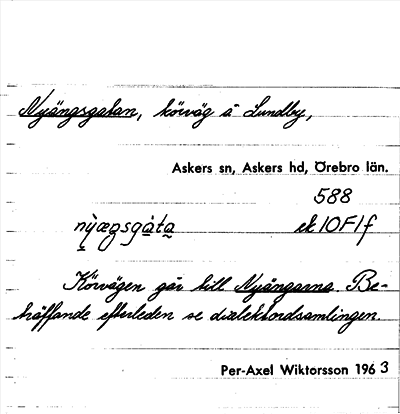 Nyängsgatan, körväg å Lundby,
Askers sn, Askers hd, Örebro län.
588
ek 10F1f
Körvägen går till Nyängarna. Be-
träffande efterleden se dialektordsamlingen.
Per-Axel Wiktorsson 1963